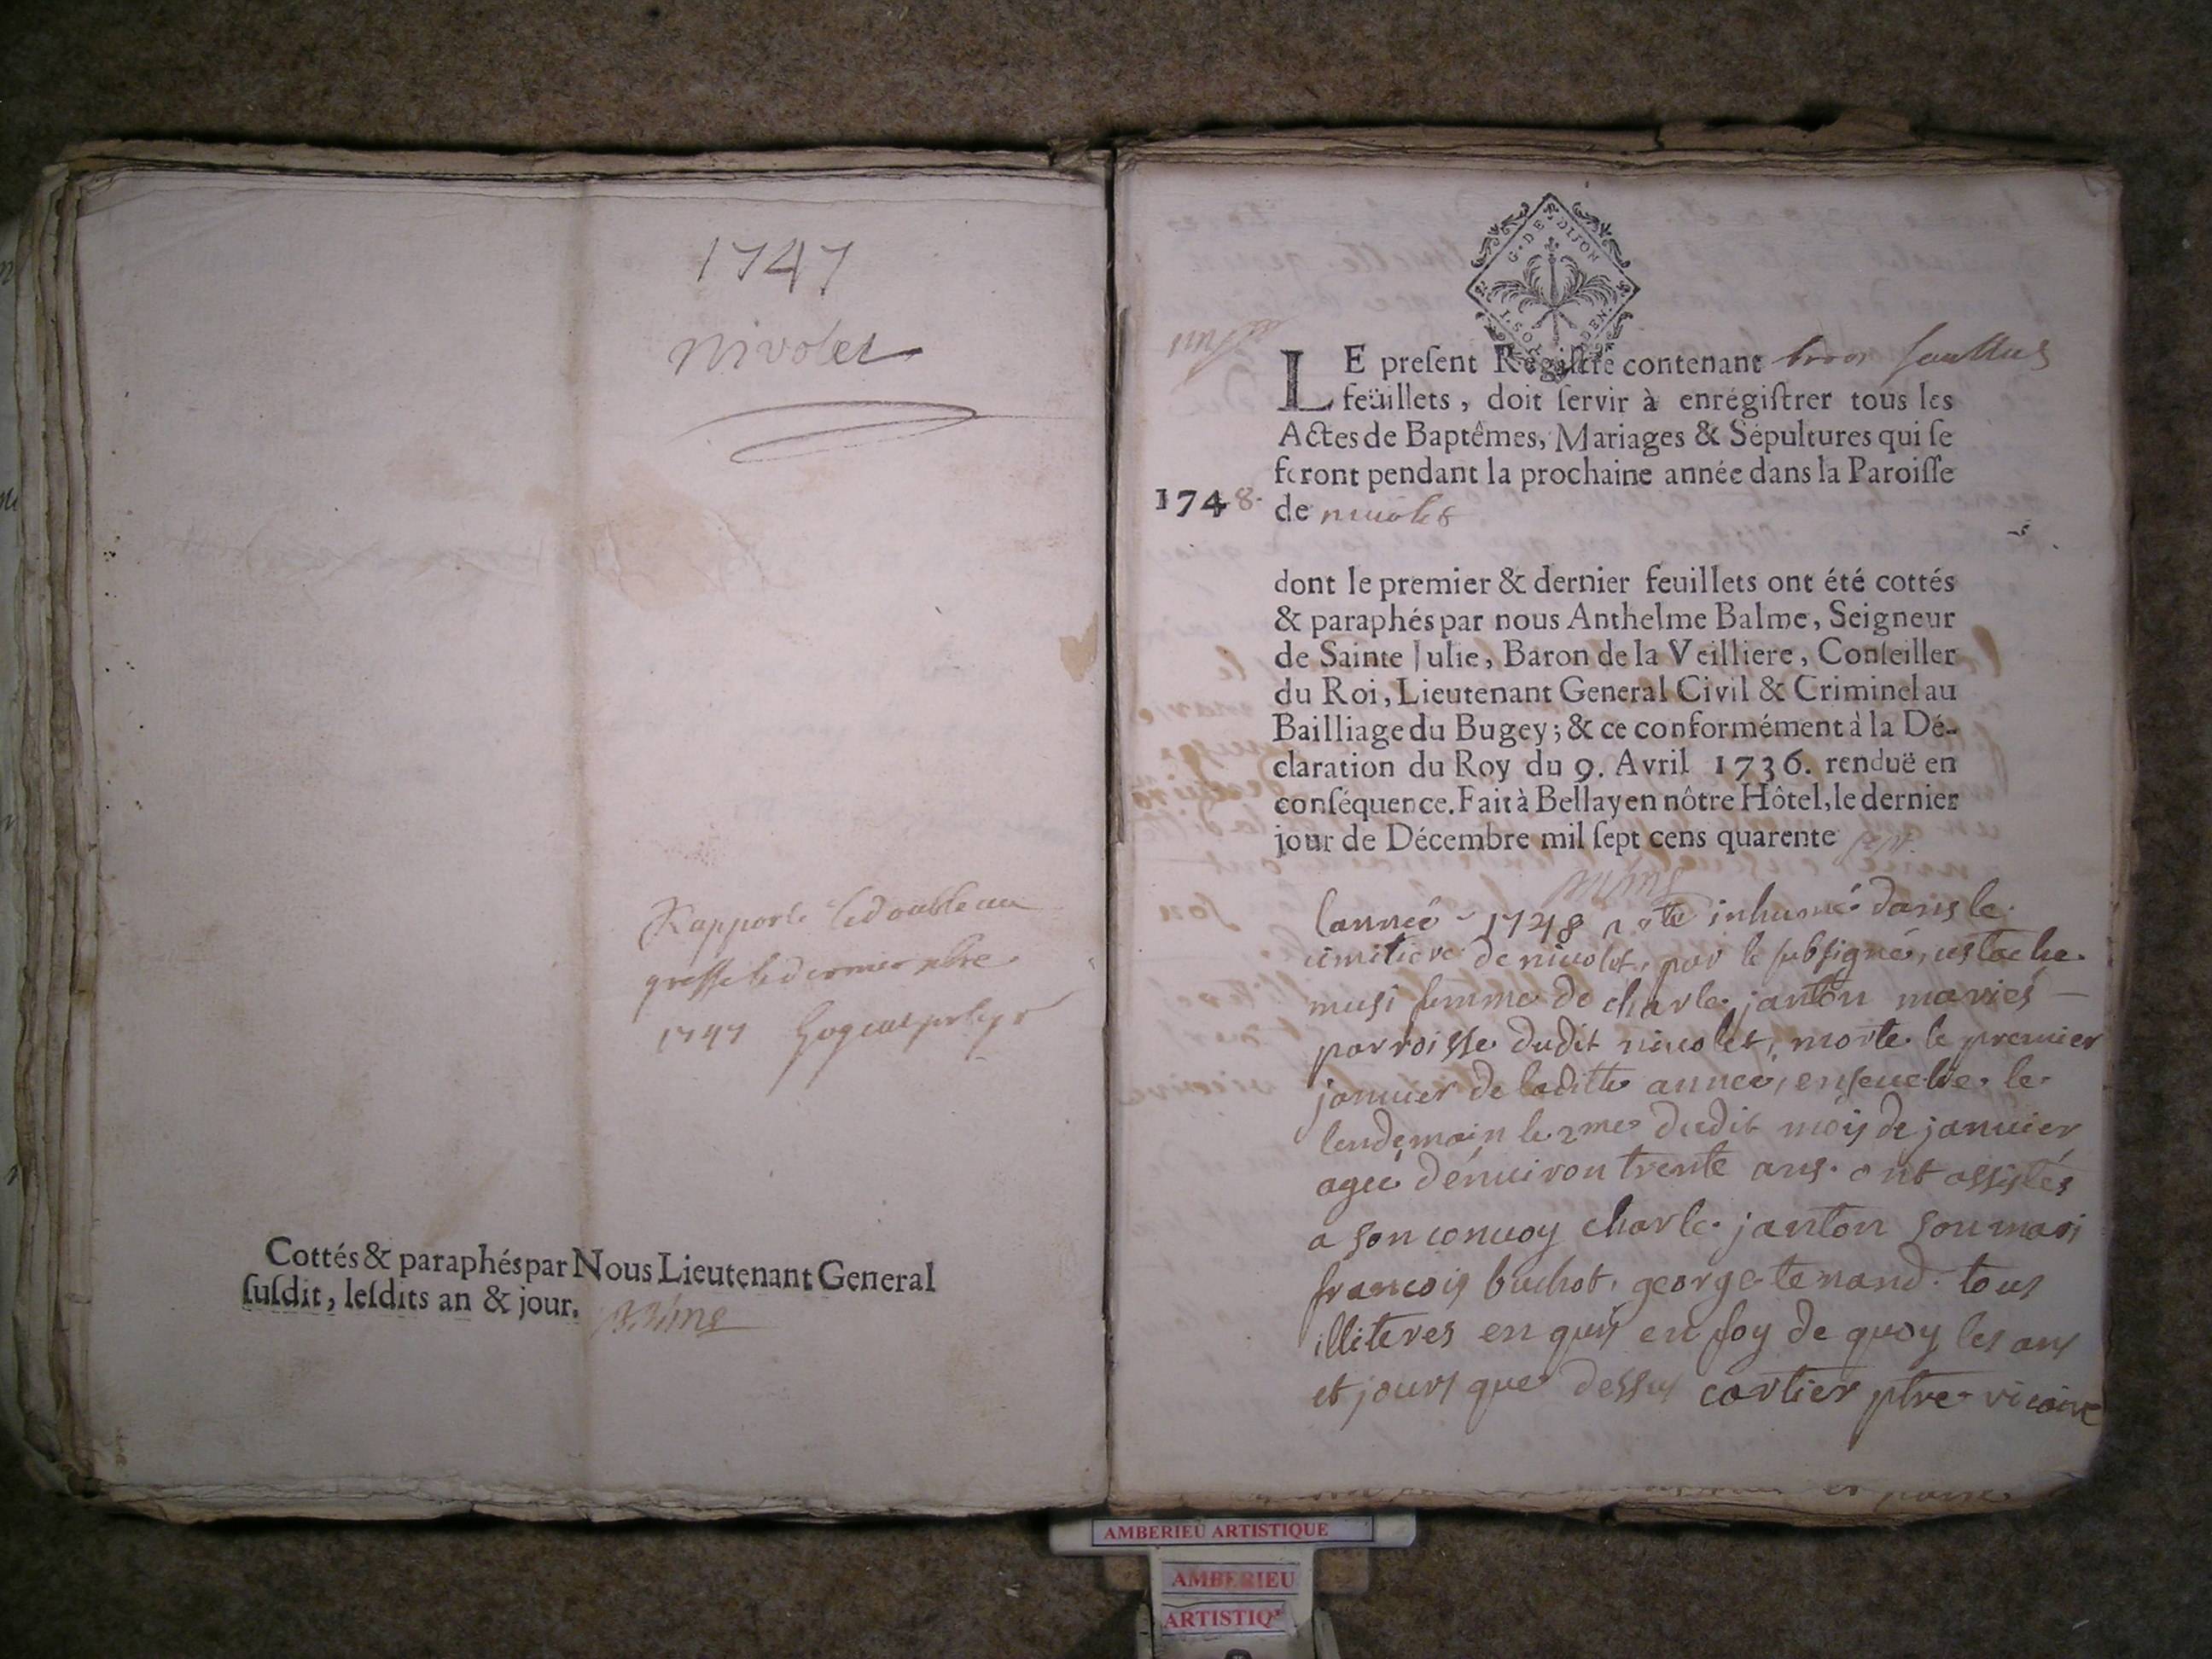 1747
Nivolet
Rapporté le double au
greffe le dernier xbre
1747
Cottés & paraphés par Nous Lieutenant General
ſuſdit, leſdits an & jour.
G. DE DIJON
LE preſent Régiſtre contenant trois
feüillets, doit ſervir à enrégiſtrer tous les
Actes de Baptêmes, Mariages & Sépultures qui ſe
feront pendant la prochaine année dans la Paroiſſe
1748.
de nivolet
dont le premier & dernier feuillets ont été cottés
& paraphés par nous Anthelme Balme, Seigneur
de Sainte Julie, Baron de la Veilliere, Conſeiller
du Roi, Lieutenant General Civil & Criminel au
Bailliage du Bugey; & ce conformément à la Dé-
claration du Roy du 9. Avril 1736. renduë en
conſéquence. Fait à Bellay en nôtre Hôtel, le dernier
jour de Décembre mil ſept cens quarente sept.
lanneé 1748 a ete inhumé dans le
cimitiere de nivolet, par le subsigné, ustache
musi femme de charle janton mariés
parroisse dudit nivolet, morte le premier
januier de laditte anneé, ensevelie le
lendemain le 2me dudit mois de januier
ageé dénuiron trente ans. ont assistés
a son conuoy charle janton son mari
francois buchot, george tenand tous
illiteres enquis en foy de quoy les ans
et jours que dessus cartier ptre vicaire
AMBERIEU ARTISTIQUE
AMBERIEU
ARTISTIQ